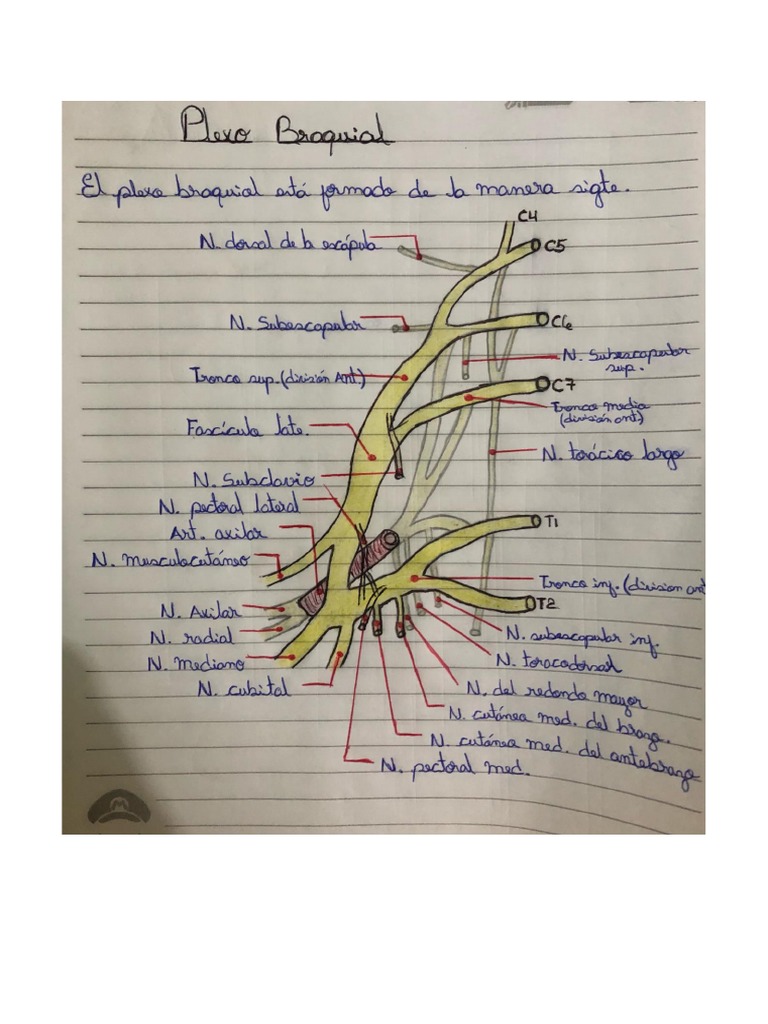 Plexo Braquial
El plexo braquial está formado de la manera sigte.
C4
N. dorsal de la escápula
C5
N. Subescapular
C6
N. Subescapular
sup.
Tronco sup. (división Ant.)
C7
Tronco medio
(división ant)
Fascículo late.
N. torácico largo
N. Subclavio
N. pectoral lateral
Art. axilar
T1
N. musculocutáneo
Tronco inf. (division ant
N. Axilar
T2
N. radial
N. subescapular inf.
N. mediano
N. toracodorsal
N. cubital
N. del redondo mayor
N. cutánea med. del brazo.
N. cutánea med. del antebrazo
N. pectoral med.
M